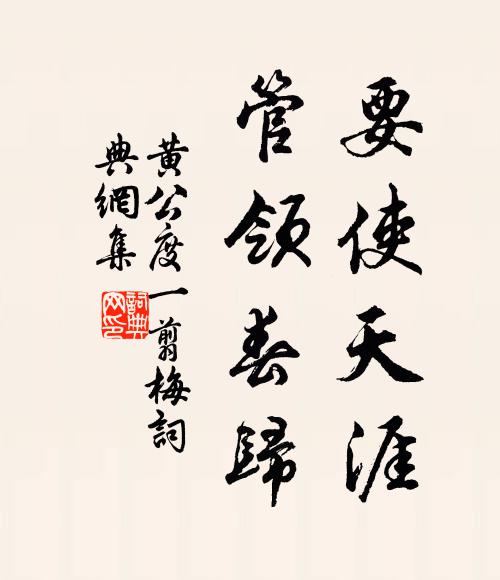 要使天涯
管領春歸
黃公度一翦梅詞
典網集
詞典
网印